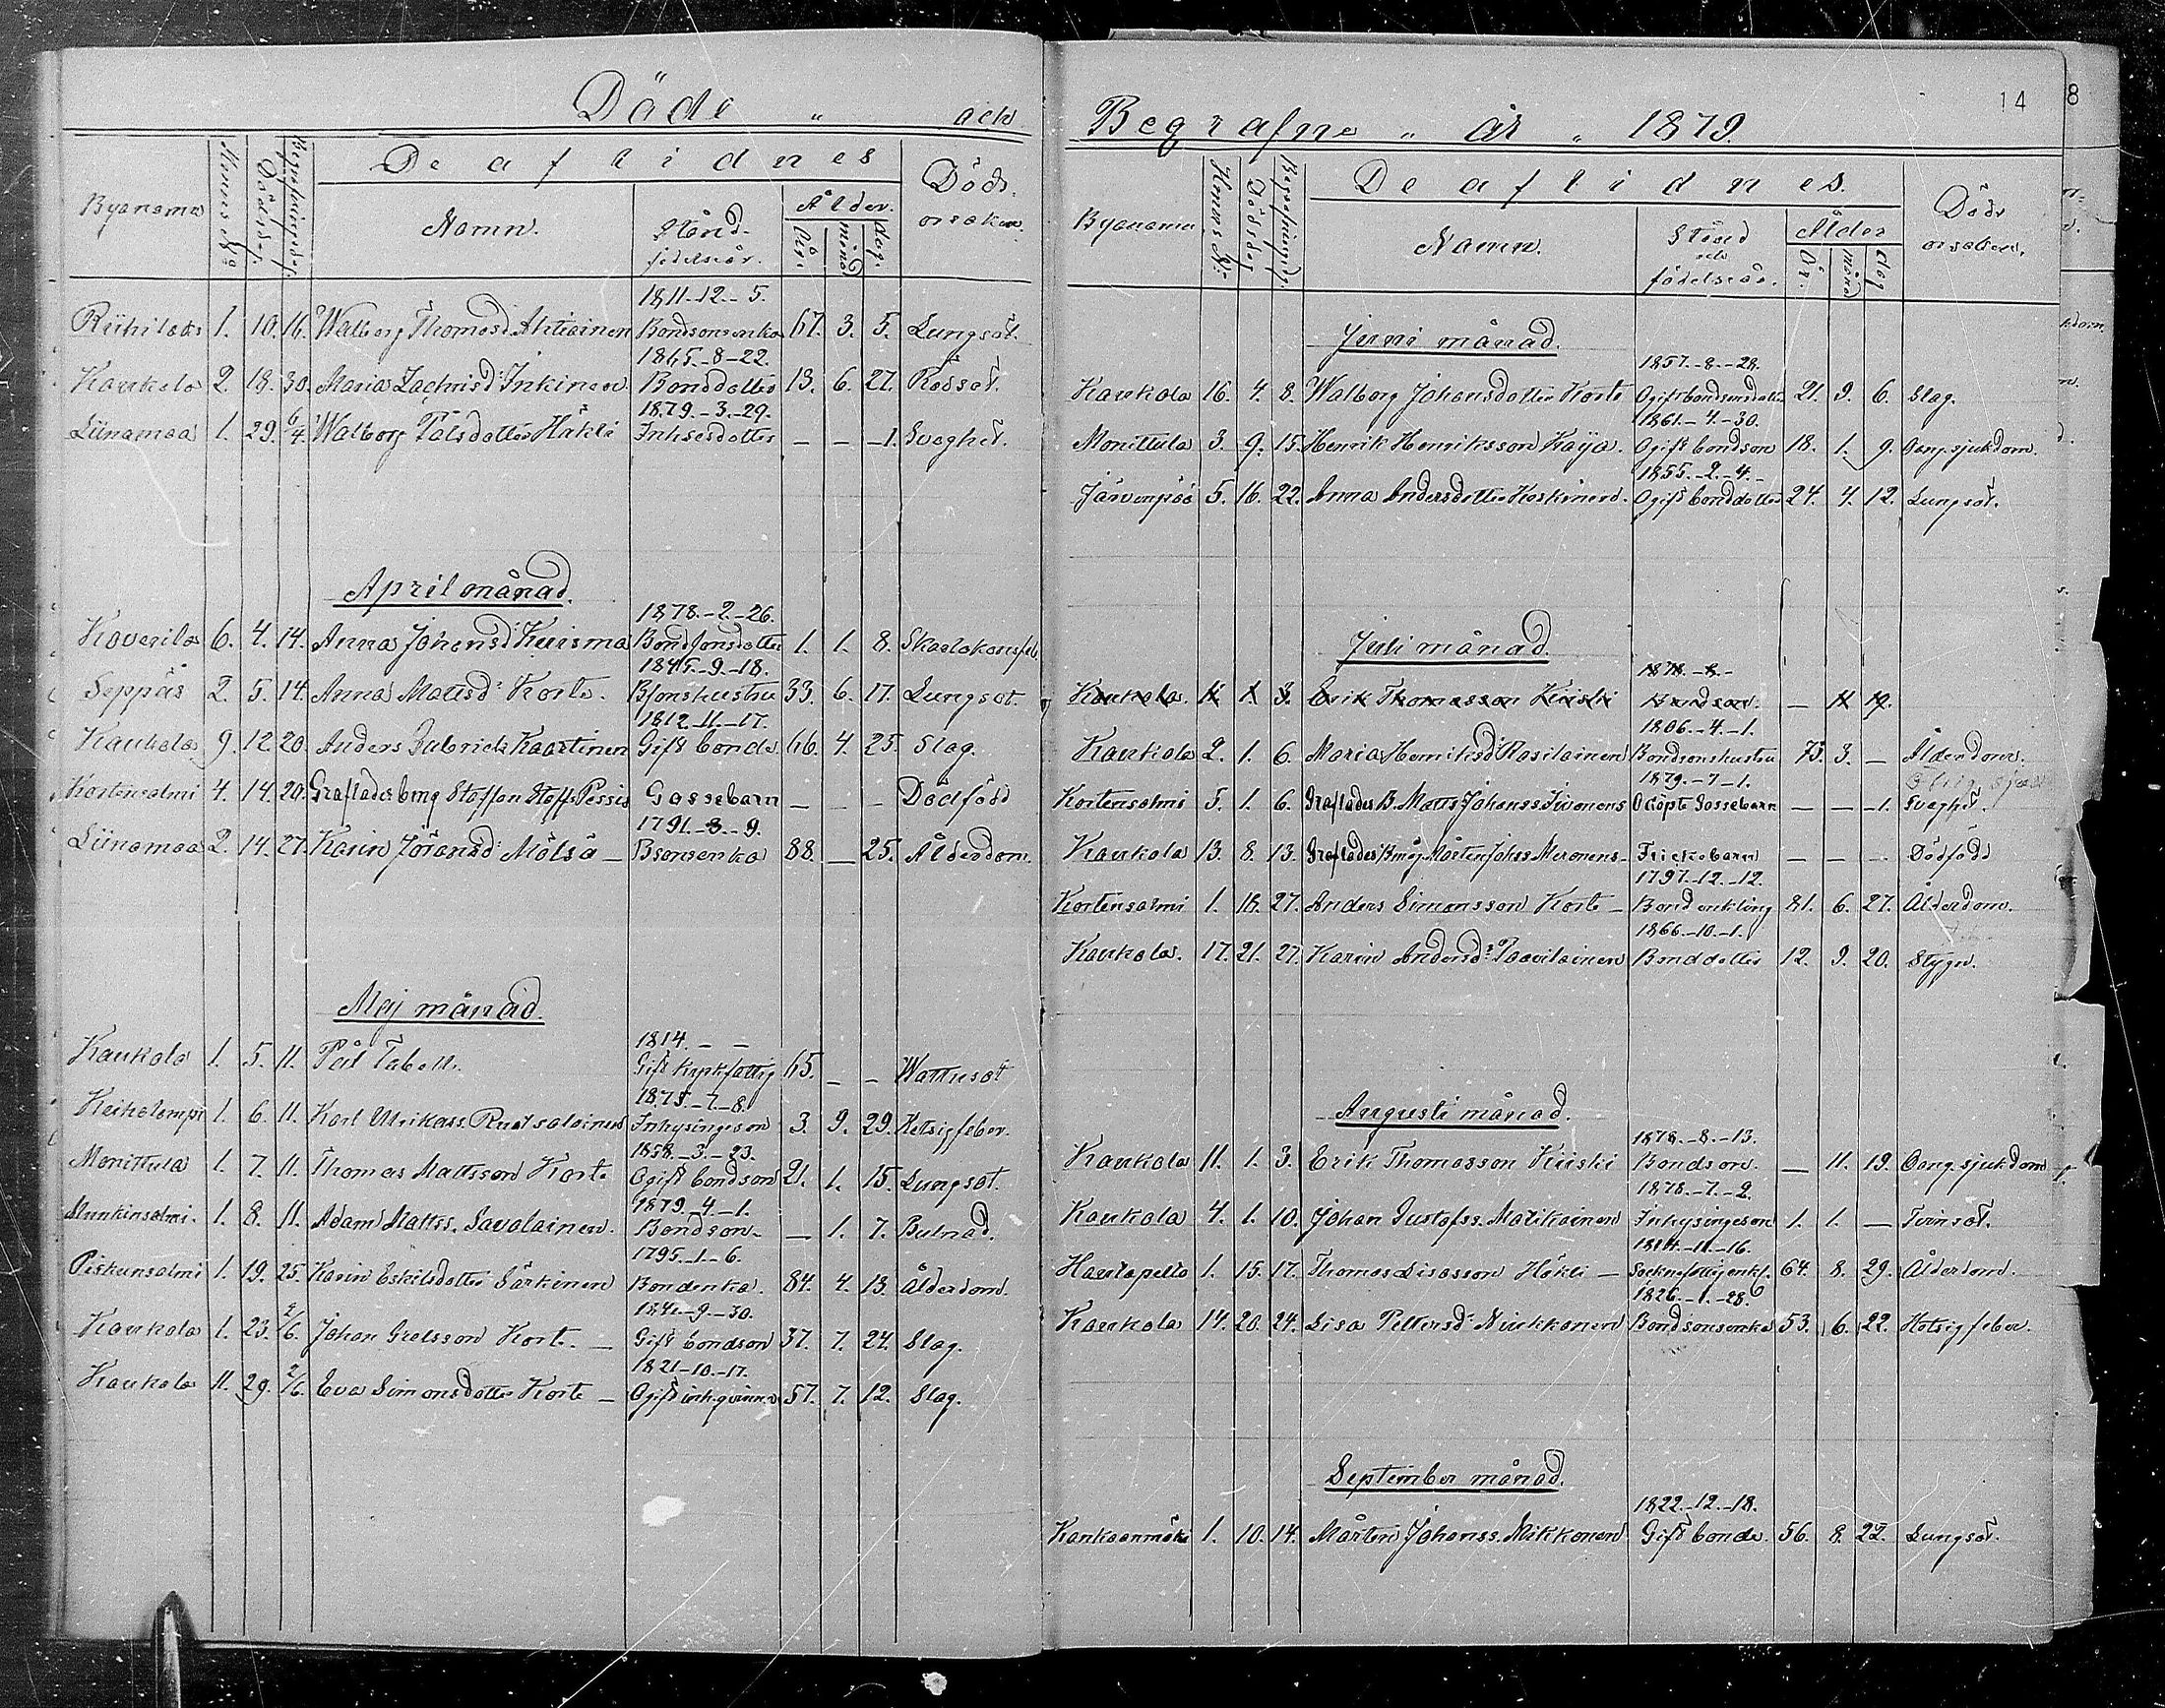 Döde " och
Byanamn Hemmans No Dödsd. Begrafningsdag De aflidnes Namn. Stånd födelseår. Ålder. År. månd dag. Döds orsaken.
1811.-12.-5.
Riihilaks 1. 10. 16. Walborg Thomasd. Ahtiainen Bondsonsenka 67. 3. 5. Lungsot.
1865.-8-22.
Kaukola 2. 18. 30. Maria Zachrisd: Inkinen Bonddotter 13. 6. 27. Rossot.
1879.-3.-29.
Liinamaa 1. 29. 6/4. Walborg Pålsdotter Häkli Inhsesdotter – – -1. Svaghet.
April månad.
1878.-2.-26.
Koverila 6. 4. 14. Anna Johansd Kuisma Bondsonsdotter 1. 1. 8. Skarlakansfeb.
1845.-9.-18.
Seppäs 2. 5. 14. Anna Mattsd: Korte. Bsonshustru 33. 6. 17. Lungsot.
1812.-11.-17.
Kaukola 9. 12. 20. Anders Gabriels Kaartinen Gift bonde 66. 4. 25. Slag.
Kortensalmi 4. 14. 20. Graflades bmg Staffan Staffs Pessis Gossebarn – – – Dödfödd
1791.-8.-9.
Liinamaa 2. 14. 27. Karin Jöransd: Mölsä – Bsonsenka 88. – 25. Ålderdom.
Maj månad.
1814. – –
Kaukola 1. 5. 11. Pål Tabell. Gift kyrkfattig 65. – – Wattusot
1875.-7.-8.
Keikolempi 1. 6. 11. Karl Ulrikass. Ruotsalainen Inhysingeson 3. 9. 29. Hetsigfeber.
1858.-3.-23.
Monittula 1. 7. 11. Thomas Mattsson Korte Ogift bondson 21. 1. 15. Lungsot.
1879.-4.-1.
Munkinsalmi. 1. 8. 11. Adam Mattss. Savolainen. Bondson- – 1. 7. Bulnad.
1795.-1.-6.
Piskunsalmi 1. 19. 25. Karin Eskilsdotter Särkinen Bondenka. 84. 4. 13. Ålderdom.
1841.-9.-30.
Kaukola 1. 23. 2/6. Johan Grelsson Korte. – Gift bondson 37. 7. 24. Slag.
1821-10.-17.
Kaukola 11. 29. 2/6. Eva Simonsdotter Korte – Ogift inh.qvinna 57. 7. 12. Slag.
Begrafne " år " 1879.
14
8
Byanamn Hemans No: Dödsdag Begrafningsd. De aflidnes. Namn. Stånd och födelseår. Ålder År. månd dag Döds orsaken.
Juni månad.
1857.-8.-28.
Kaukola 16. 4. 8. Walborg Johansdotter Korte Ogift bondsonsdotter 21. 9. 6. Slag.
1861.-4.-30.
Monittula 3. 9. 15. Henrik Henriksson Käyä. Ogift bondson 18. 1. 9. Gångsjukdom.
1855.-2.-4.-
Järvenpää 5. 16. 22. Anna Andersdotter Koskinen. Ogift bonddotter 24. 4. 12. Lungsot.
Juli månad.
1878.-8.-
Kaukola. 11 1. 3. Erik Thomasson Kiiski Bondson. – 11 19.
1806.-4.-1.
Kaukola 2. 1. 6. Maria Henriksd: Rasilainen Bondsonshustru 73. 3. – Ålderdom.
1879.-7-1.
Kortensalmi 5. 1. 6. Graflades B. Matts Johanss Iivonens Odöpte Gossebarn – – -1. Svaghet.
Kaukola 13. 8. 13. Graflades Bmåg Mårten Johss Meronens- Flickebarn – – – Dödfödd
1797.-12.-12.
Kortensalmi 1. 18. 27. Anders Simonsson Korte – Bond enkling 81. 6. 27. Ålderdom.
1866.-10.-1.
Kaukola. 17. 21. 27. Karin Andersd: Paavilainen Bonddotter 12. 9. 20. Stygn.
Augusti månad.
1878.-8.-13.
Kaukola 11. 1. 3. Erik Thomasson Kiiski Bondson. – 11. 19. Gångsjukdom
1878.-7.-2.
Kaukola 4. 1. 10. Johan Gustafss. Matikainen Inhysingeson 1. 1. – Tvinsot.
1814.-11.-16.
Haapapelto 1. 15. 17. Thomas Lisasson Häkli – Socknefattig enkl. 64. 8. 29. Ålderdom.
1826.-1.-28.
Kaukola 14. 20. 24. Lisa Pettersd: Nirkkonen Bondsonsenka 53. 6. 22. Hetsigfeber.
September månad.
1822.-12.-18.
Kankaanmäki 1. 10. 14. Mårten Johanss. Mikkonen Gift bonde. 56. 8. 22. Lungsot.